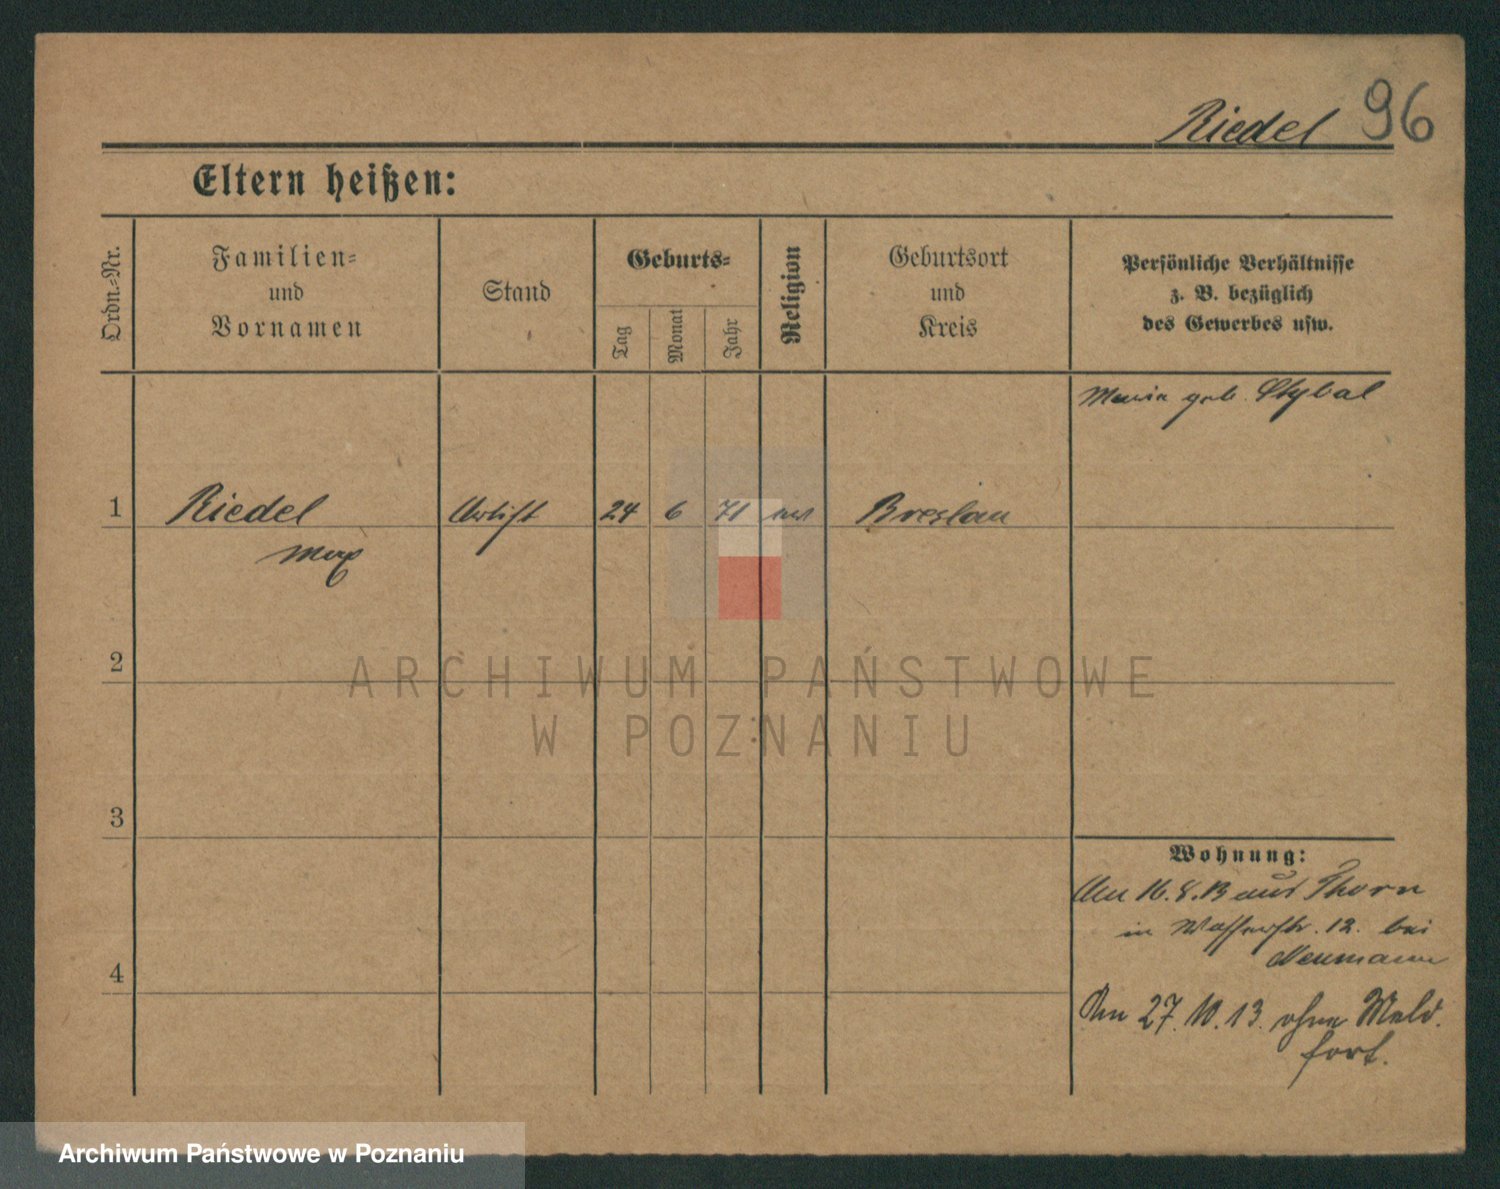 Riedel 96
Eltern heißen:
Ordn.-Nr.
Familien=
und
Vornamen
Stand
Geburts=
Tag
Monat
Jahr
Religion
Geburtsort
und
Kreis
Persönliche Verhältnisse
z. B. bezüglich
des Gewerbes usw.
Maria geb.
1 Riedel Artist 24 6 71 Breslau
Max
2
3
4
Wohnung:
Am 16.8.13 aus Thorn
in Wasserstr. 12. bei
Neumann
Am 27.10.13. ohne Meld.
fort.
ARCHIWUM PAŃSTWOWE
W POZNANIU
Archiwum Państwowe w Poznaniu